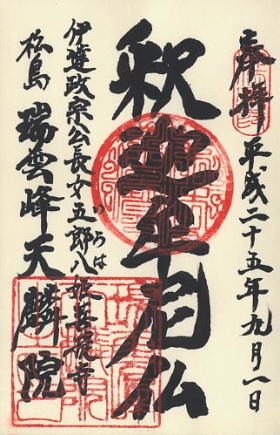 奉拝 平成二十五年九月一日
釈迦牟尼仏
伊達政宗公長女五郎八姫菩提寺
いろは
松島 瑞雲峰天麟院